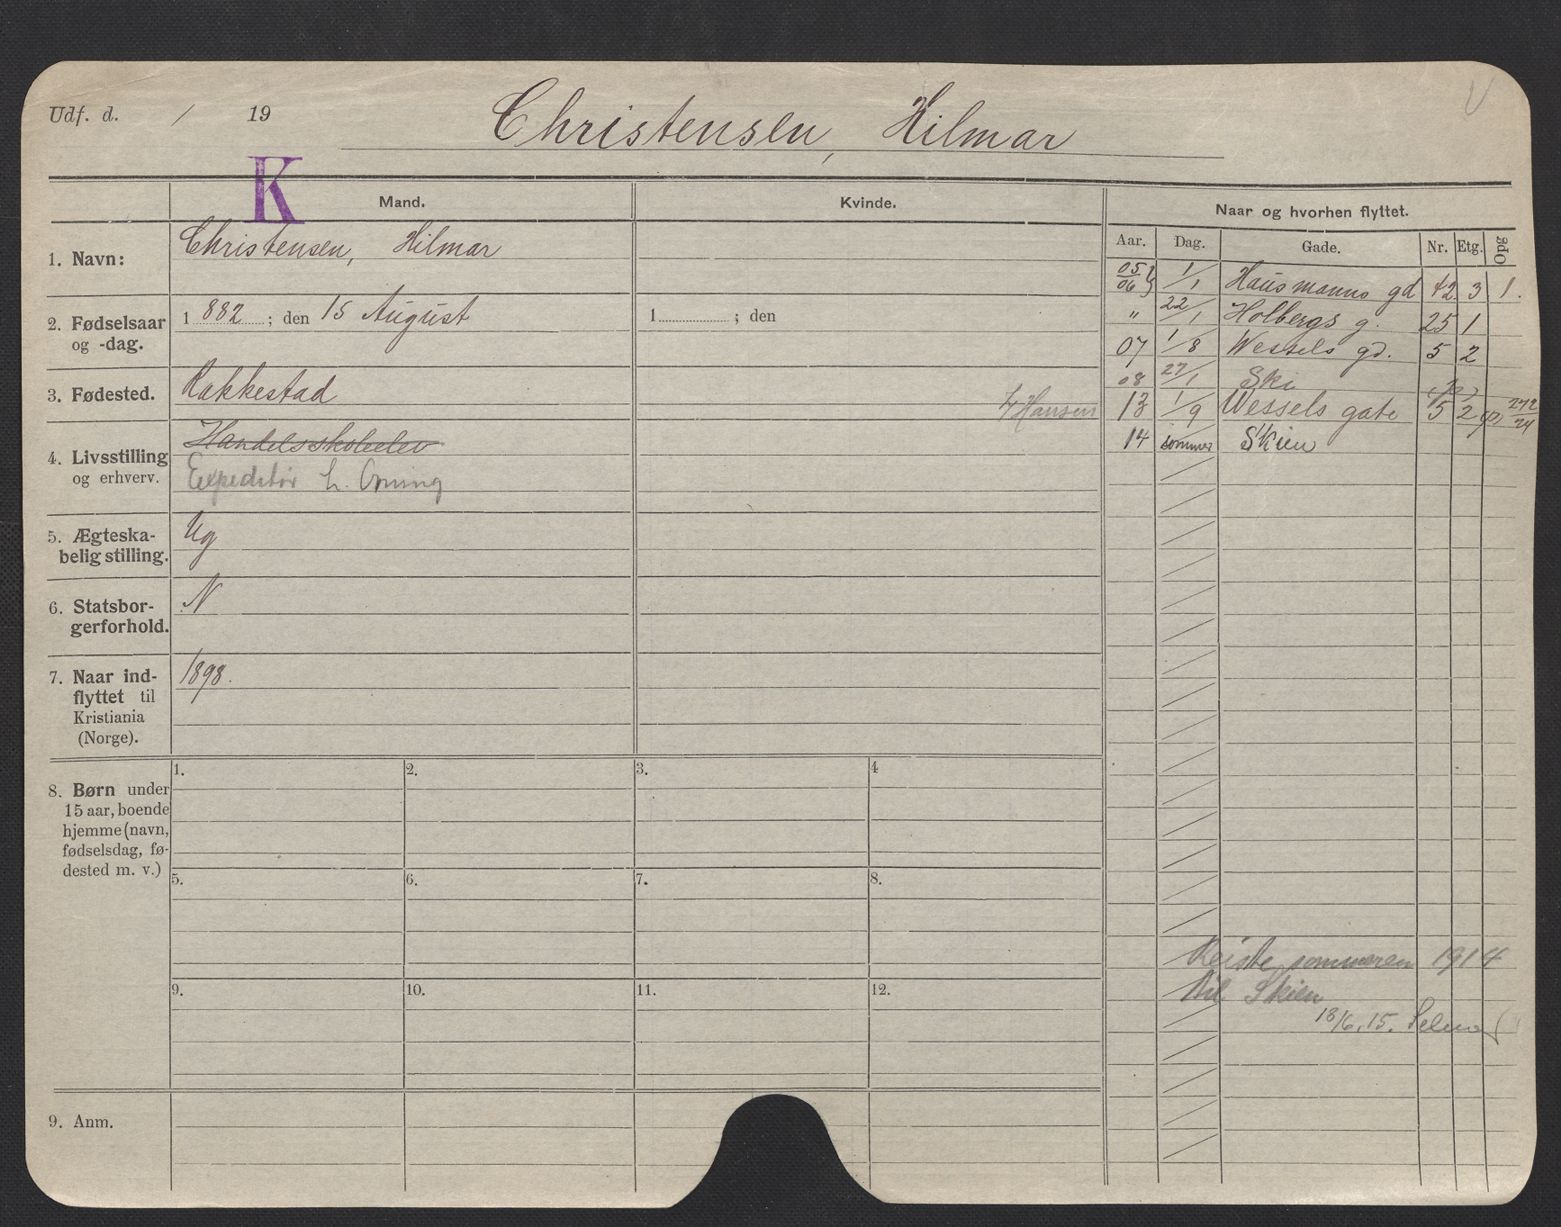 Udf. d. / 19
Christensen, Hilmar
K
Mand.
Kvinde.
Naar og hvorhen flyttet.
Aar. Dag. Gade. Nr. Etg. Opg
1. Navn:
Christensen, Hilmar
2. Fødselsaar
og -dag.
1882; den 15 August
1 ; den
3. Fødested.
Rakkestad
4. Livsstilling
og erhverv.
Handelsskoleelev
Expeditør
Hansen
5. Ægteska-
belig stilling.
Ug
6. Statsbor-
gerforhold.
N
7. Naar ind-
flyttet til
Kristiania
(Norge).
1898.
8. Børn under
15 aar, boende
hjemme (navn,
fødselsdag, fø-
dested m. v.)
1. 2. 3. 4
5. 6. 7. 8.
9. 10. 11. 12.
9. Anm.
05/06 1/1 Hausmanns gd 42 3 1.
" 22/1 Holbergs g. 25 1
07 1/8 Wessels gd. 5 2
08 27/1 Ski
13 1/9 Wessels gate 5 2
14 sommer Skien
Reiste sommeren 1914
til Skien
18/6. 15.